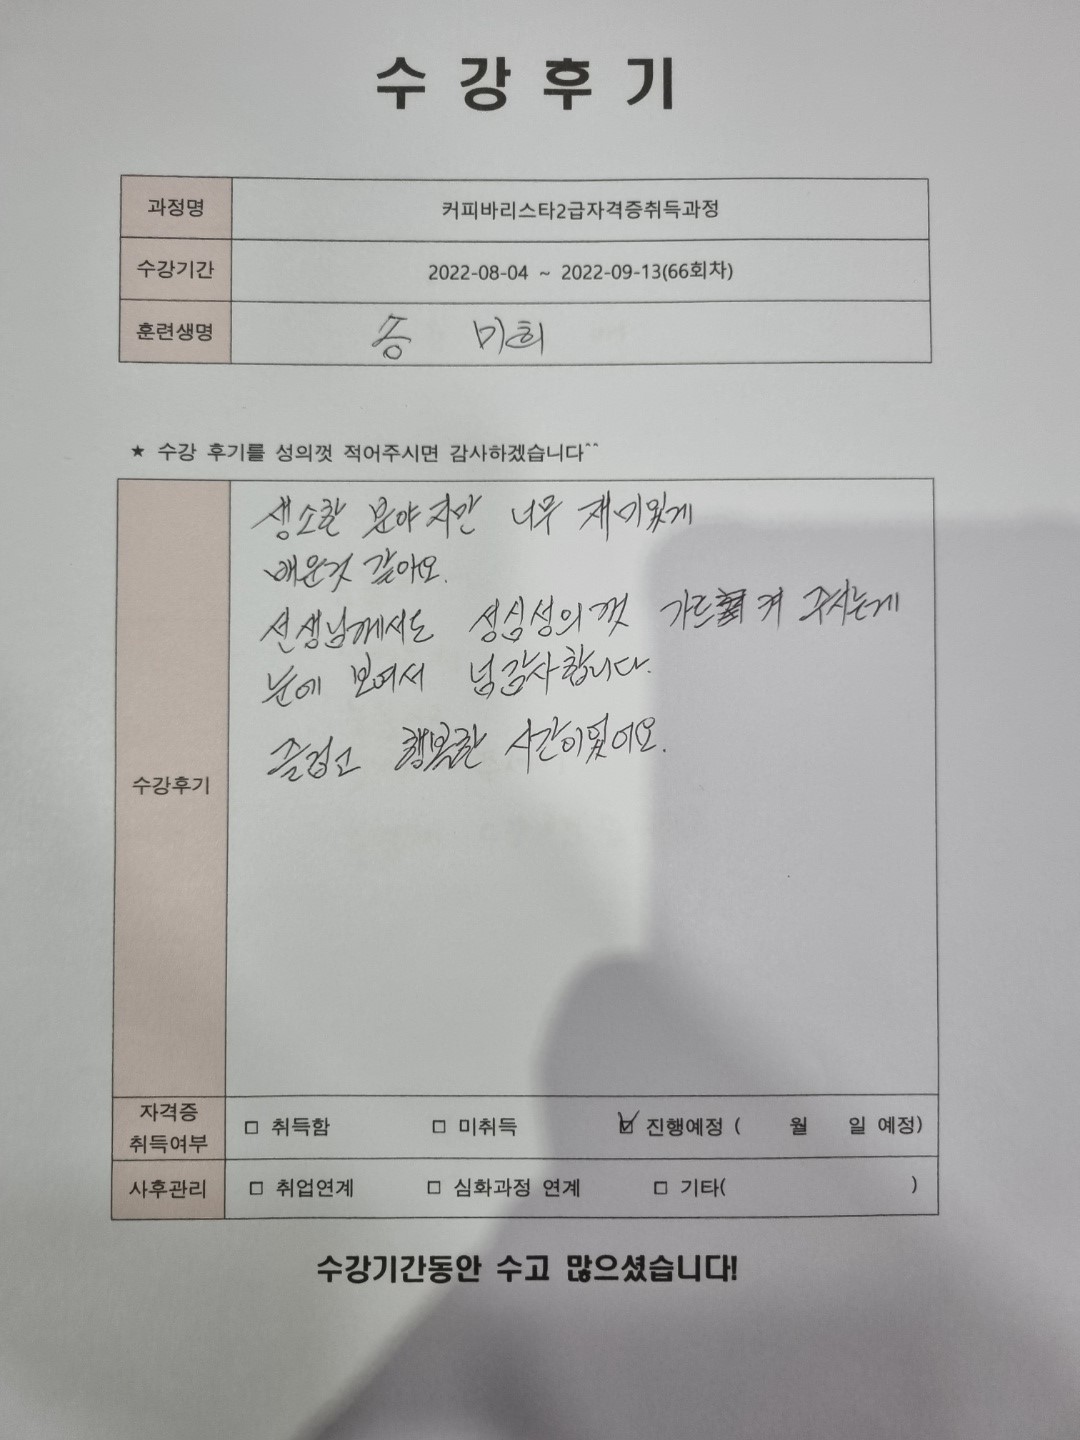 수강후기
과정명 커피바리스타2급자격증취득과정
수강기간 2022-08-04 ~ 2022-09-13(66회차)
훈련생명 송 미희
★ 수강 후기를 성의껏 적어주시면 감사하겠습니다^^
생소한 분야지만 너무 재미있게
배운것 같아요.
선생님께서도 성심성의껏 가르켜 주시는게
눈에 보여서 넘감사합니다.
즐겁고 행복한 시간이었어요.
수강후기
자격증
취득여부 □ 취득함 □ 미취득 ☑ 진행예정 ( 월 일 예정)
사후관리 □ 취업연계 □ 심화과정 연계 □ 기타( )
수강기간동안 수고 많으셨습니다!